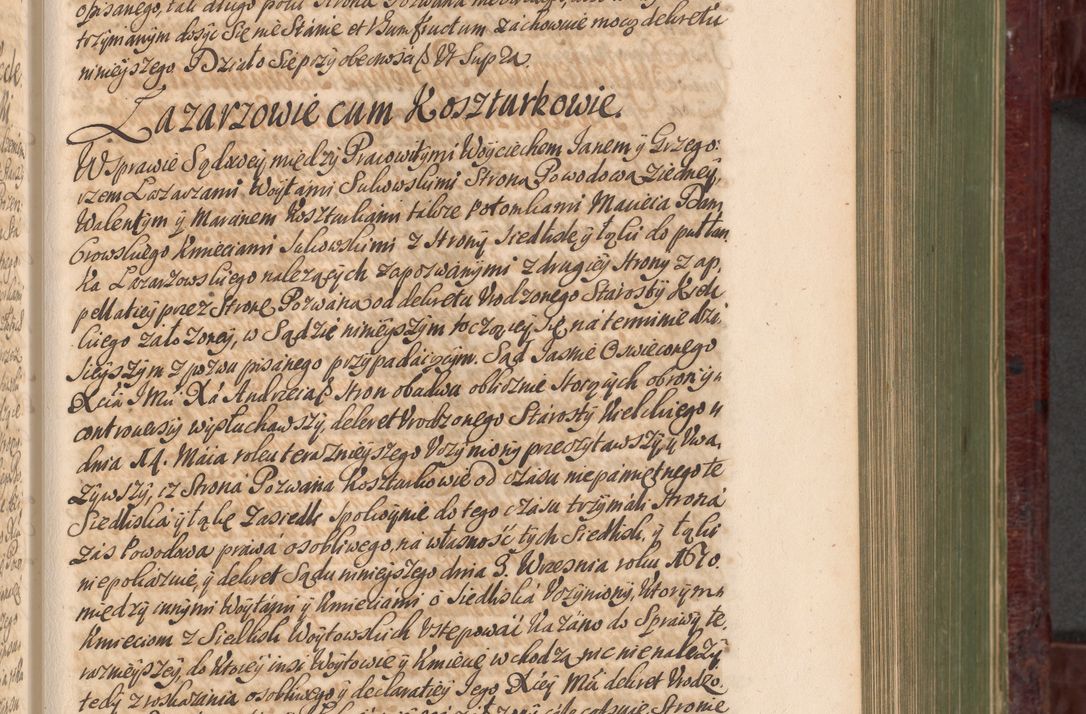 trzymanym dosyć się nie stanie et usumfructum zachowuie mocą dekretu
ninieyszego Działo się przy obecności ut supra.
Łazarzowie cum Koszturkowie.
W sprawie Sądowey między Pracowitymi Woyciechem Janem y Grzego:
rzem Łazarzami Woytami Sukowskimi Strona Powodowa z iedney,
Walentym y Marcinem Koszturkami także potomkami Macieia Dam
browskiego kmieciami Sukowskimi z strony siedliska y łąki do pułłan
ka Łazarzowskiego należących zapozwanymi z drugiey strony z ap,
pellatiey przez stronę Pozwaną od dekretu Urodzonego Starosty Kiel
ckiego założoney, w Sądzie ninieyszym toczącey się, na terminie dzi
sieyszym z pozwu pisanego przypadaiącym. Sąd Jasnie Oswieconego
Xcia JMci Xa Andrzeia stron obudwu oblicznie stoiących obron y
controversiy wysłuchawszy, dekret Urodzonego Starosty Kielckiego
dnia 14. Maia roku teraznieyszego Uczyniony przeczytawszy, y Uwa,
żywszy, iz Strona Pozwana Koszturkowie od czasu niepamiętnego te
Siedliska y łąkę zasiedli spokoynie do tego czasu trzymali strona
zas powodowa prawa osobliwego, na własność tych siedlisk, y łąki
niepokazuie, y dekret Sądu ninieyszego dnia 5. Wrzesnia roku 1670.
między innymi Woytami y kmieciami o Siedliska Uczyniony, ktorym
kmieciom z Siedlisk Woytowskich Ustępować kazano do sprawy te,
raznieyszey, do ktorey insi Woytowie y kmiecie wchodzą nic nienależy,
tedy z roskazania osobliwego y declaratiey Jego Xcey Mci dekret Urodzo